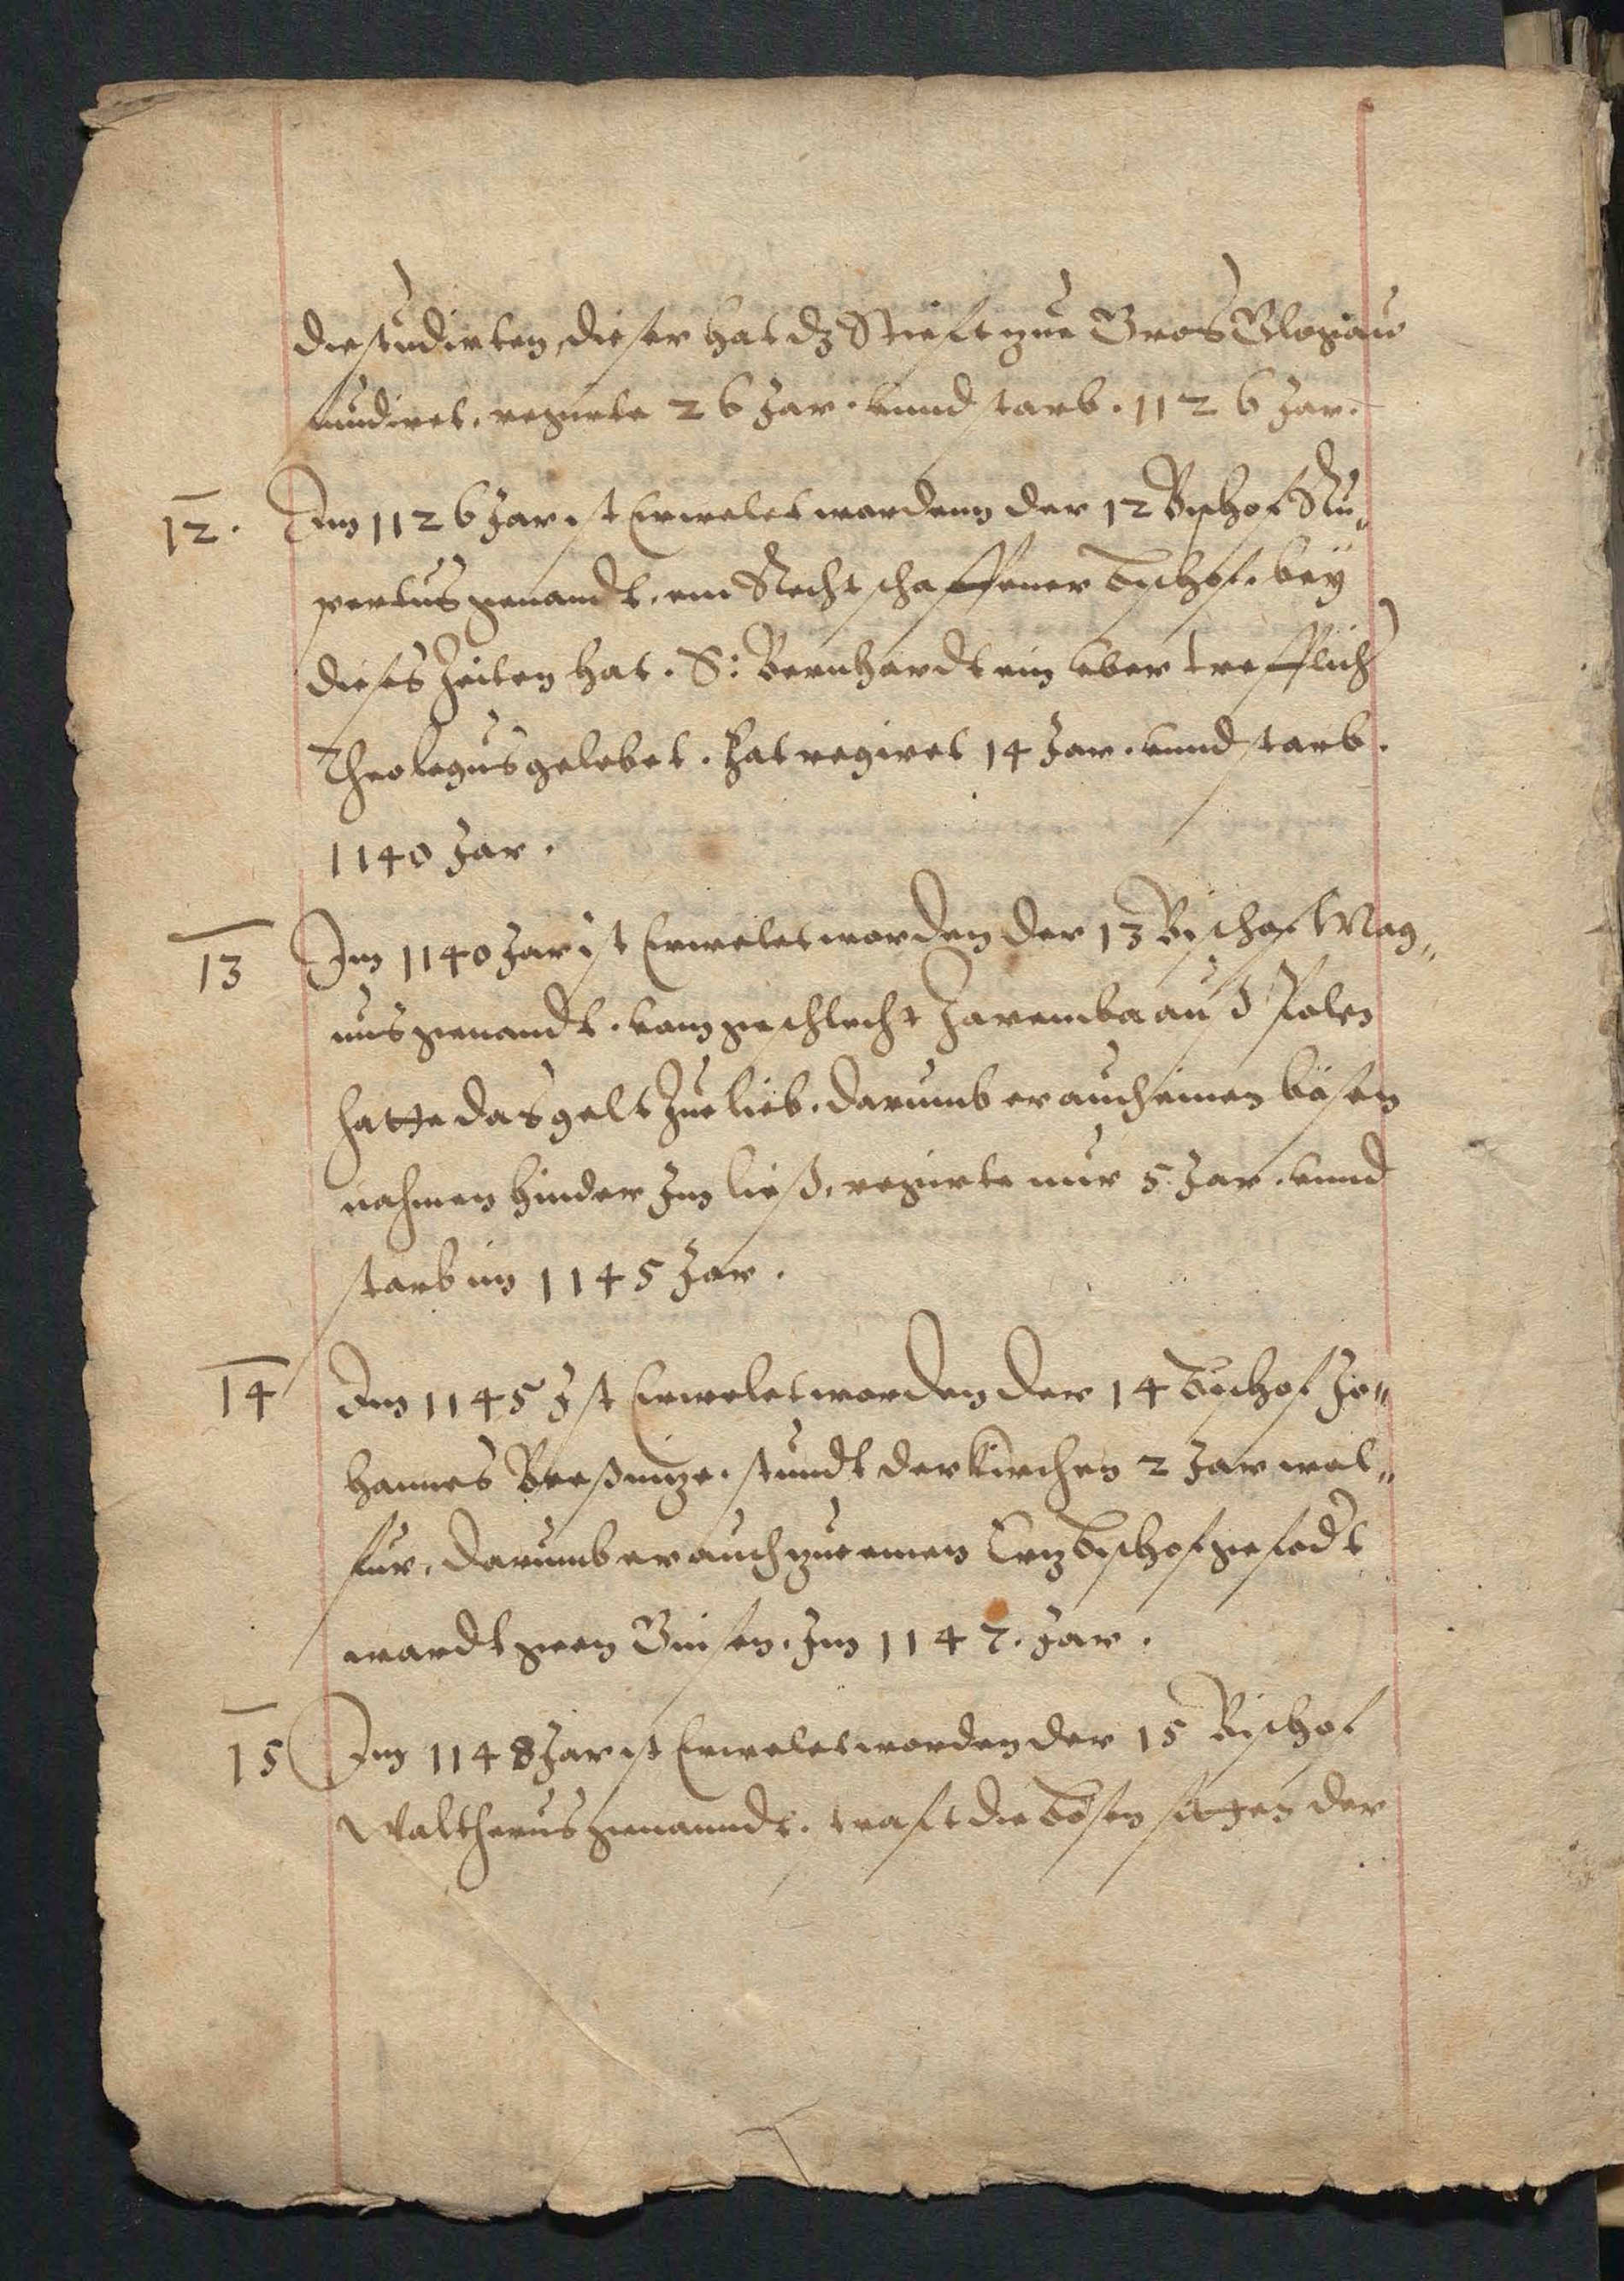 die studirten, dieser hat dz Stieft zue Gros Glogaw
fundiret. regirte 26 Jar. vnnd starb. 1126 Jar.
12. Im 1126 Jar ist Erwelet wordenn der 12 Bischof Ru„
pertus genandt. ein Rechtschaffener Bischof. bey
dieses Zeiten hat. S: Bernhardt ein vbertrefflich
Theologus gelebet. Hat regiret 14 Jar. vnnd starb.
1140 Jar.
13 Im 1140 Jar ist Erwelet worden der 13 Bischof Mag„
nus genandt. vom geschlecht Zaremba auß Polen
hatte das gelt Zue lieb. darumb er auch einen bösen
nahmen hinder Im ließ. regirte nur 5. Jar. vnnd
starb im 1145 Jar.
14 Im 1145 Ist Erwelet worden der 14 Bischof Jo„
hannes stundt der kirchen 2 Jar wol„
fur, darumb er auch zue einen Ertzbischof gefodt
wardt gen Gnisen. Im 1147. Jar.
15 Im 1148 Jar ist Erwelet worden der 15 Bischof
Waltherus genanndt. straft die bösen sitten der